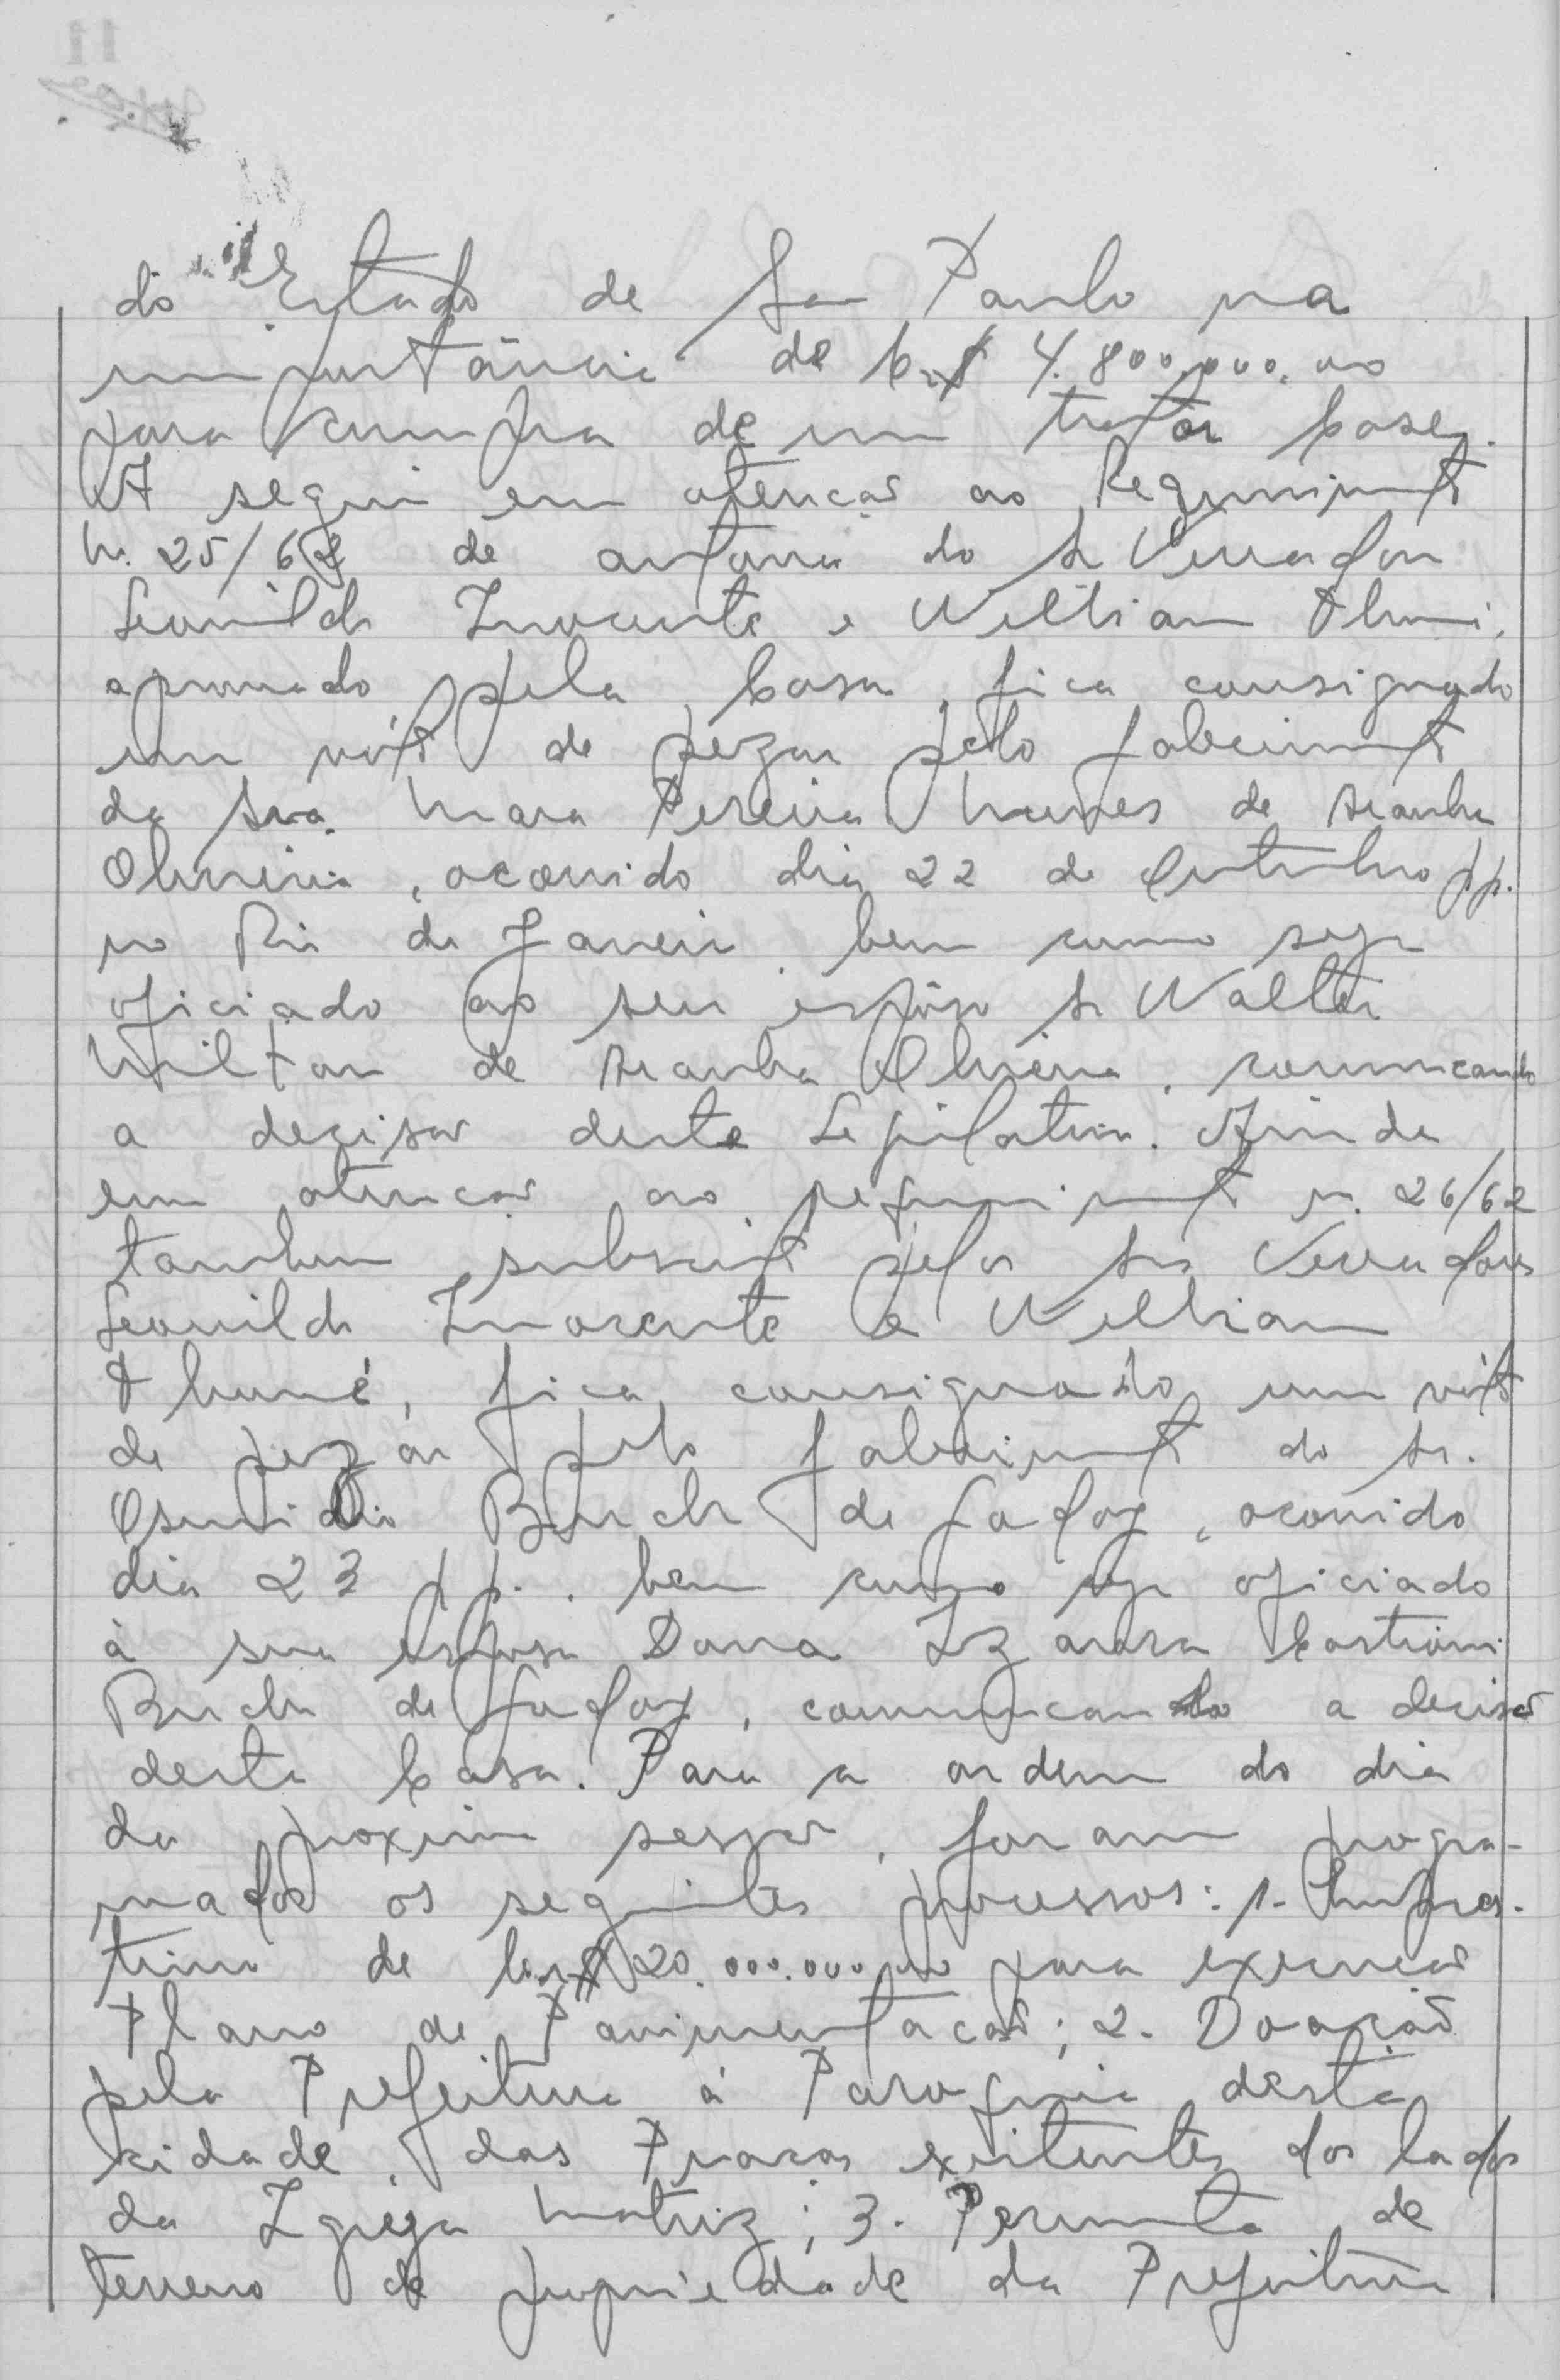 do Estado de São Paulo na
importância de Cr$ 4.800.000,00
para compra de um trator Case.
A seguir em atenção ao Requerimento
n. 25/62 de autoria do Sr Vereador
Leonildo Inocente e Willian
aprovado pela Casa, fica consignado
um voto de pezar pelo falecimento
da Sra. Mara Pereira Nunes de Aranha
Oliveira, ocorrido dia 22 de Outubro pp.
no Rio de Janeiro, bem como seja
oficiado ao seu espôso Sr Walter
Milton de Aranha Oliveira, comunicando
a decisão deste Legislativo. Ainda
em atenção ao requerimento n. 26/62
tambem subscrito pelos Srs Vereadores
Leonildo Inocente e Willian
fica consignado um voto
de pezar pelo falecimento do Sr.
Bueno de Godoy, ocorrido
dia 23 pp., bem como seja oficiado
à sua esposa Dona Izaura
Bueno de Godoy, comunicando a decisão
desta Casa. Para a ordem do dia
da proxima sessão, foram progra-
mados os seguintes processos: 1- Empres-
timo de Cr$ 20.000.000,00 para execução
Plano de Pavimentação; 2. Doação
pela Prefeitura à Paroquia desta
cidade, das Praças existentes dos lados
da Igreja Matriz; 3. Permuta de
terreno de propriedade da Prefeitura